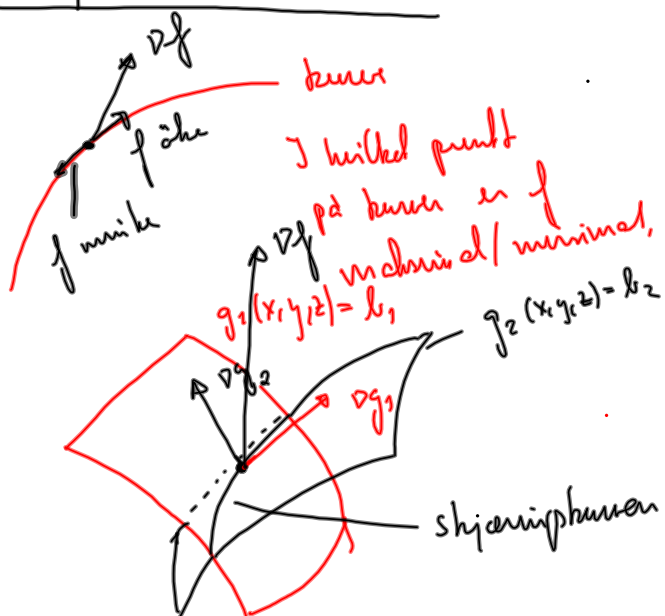 ∇f
kurve
f øke
f minke
I hvilket punkt
på kurven er f
maksimal/minimal.
∇f
g₁(x,y,z)=b₁
g₂(x,y,z)=b₂
∇g₂
∇g₁
skjæringskurven